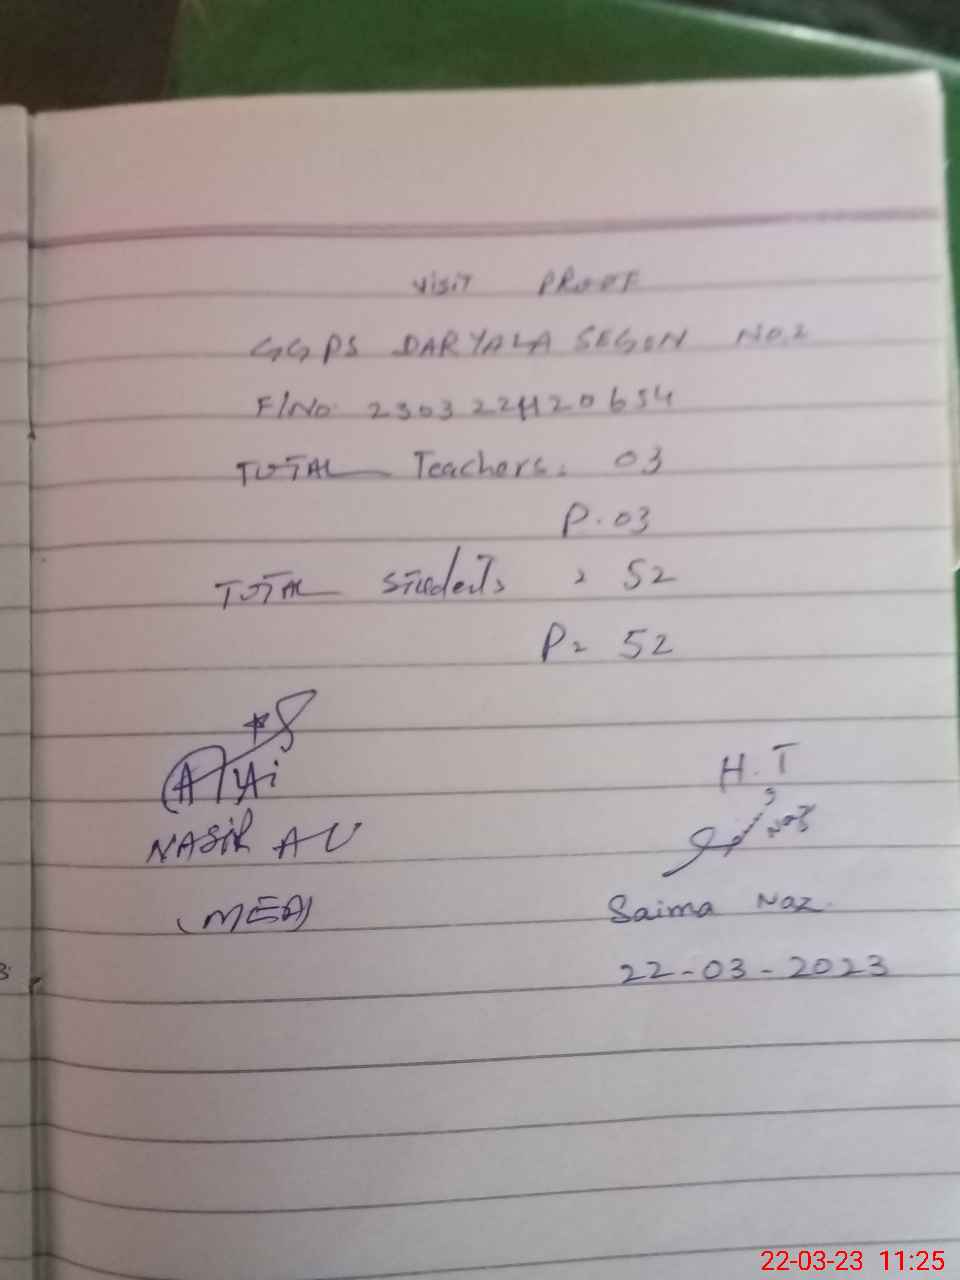 Visit PROOF
GGPS DARYALA SEGON NO.2
F/No. 230322H20654
TOTAL Teachers. 03
P. 03
TOTAL Students = 52
P= 52
Ali
H.T
Naz
NASIR ALI
(MEA)
Saima Naz.
22-03-2023
22-03-23 11:25